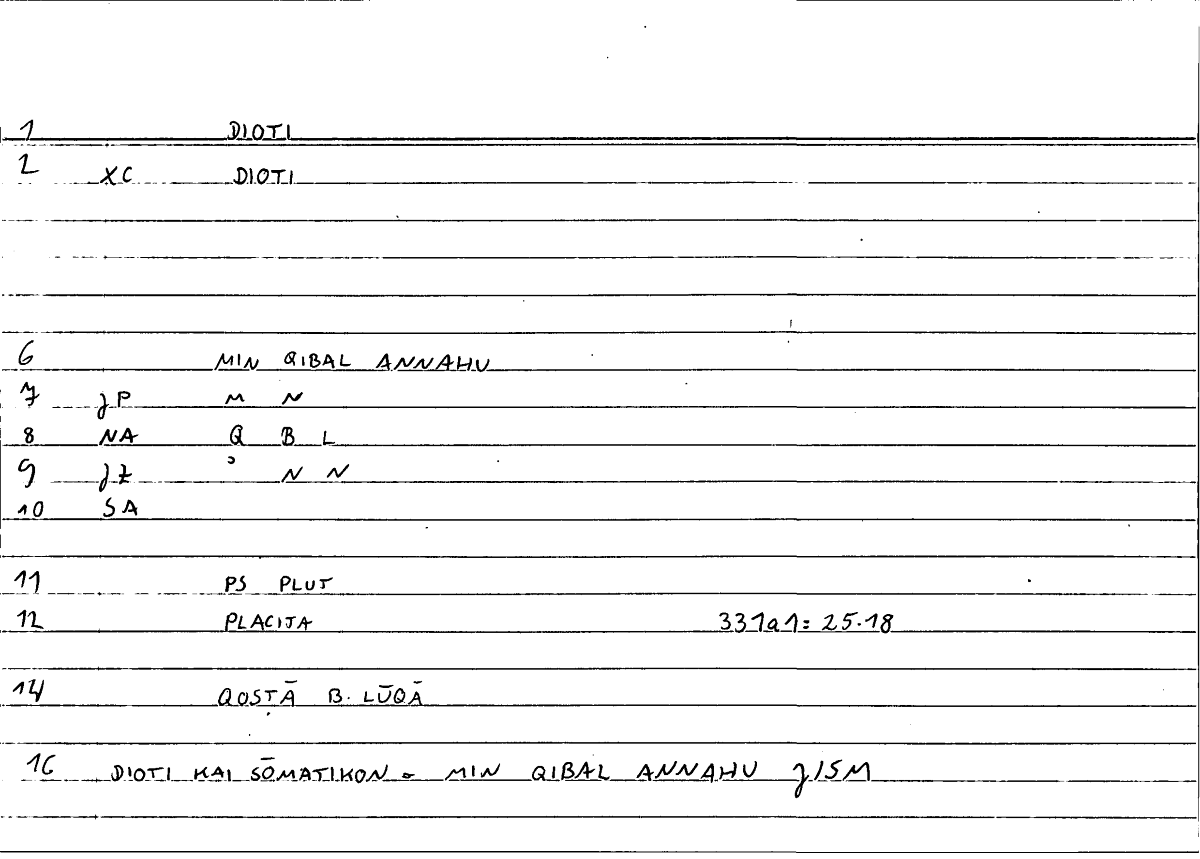 1 DIOTI
2 XC DIOTI
6 MIN QIBAL ANNAHU
7 JP M N
8 NA Q B L
9 JZ ʾ N N
10 SA
11 PS PLUT
12 PLACITA 331a1= 25.18
14 QOSṬĀ B. LŪQĀ
16 DIOTI KAI SŌMATIKON = MIN QIBAL ANNAHU JISM